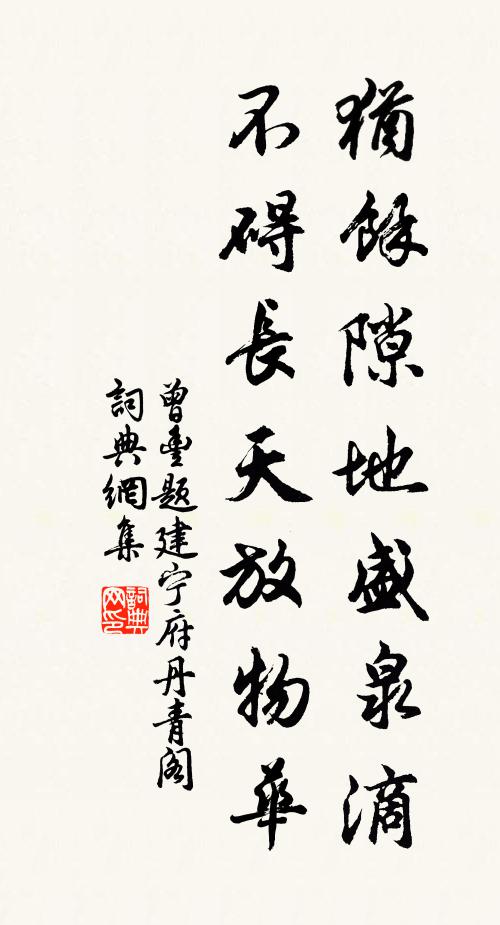 猶餘隙地盛泉滴
不碍長天放物華
曾豊題建宁府丹青阁
詞典網集
詞典网印